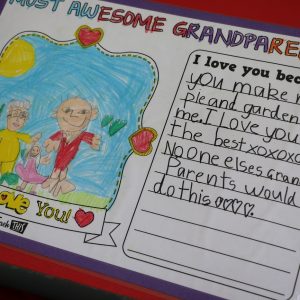 MOST AWESOME GRANDPARE
I love you bec
you make
pie and garden
me. I love you
the best xoxoxo
No one elses Gran
Parents would
do this ♡♡♡♡.
Love You!
Teach This